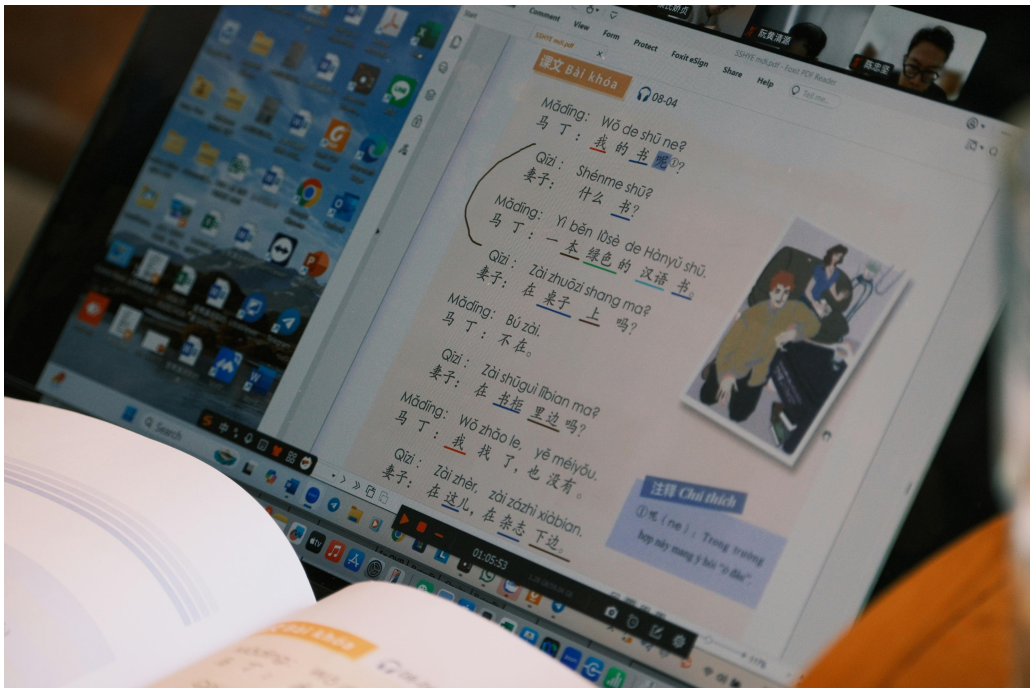 Start
Comment
View
Form
Protect
Foxit eSign
Share
Help
Tell me...
SSHYE mới.pdf - Foxit PDF Reader
SSHYE mới.pdf
阮黄清源
课文 Bài khóa
08-04
Mǎdīng: Wǒ de shū ne?
马丁：我的书呢①?
Qīzi: Shénme shū?
妻子：什么书?
Mǎdīng: Yì běn lǜsè de Hànyǔ shū.
马丁：一本绿色的汉语书。
Qīzi: Zài zhuōzi shang ma?
妻子：在桌子上吗?
Mǎdīng: Bú zài.
马丁：不在。
Qīzi: Zài shūguì lǐbian ma?
妻子：在书柜里边吗?
Mǎdīng: Wǒ zhǎo le, yě méiyǒu.
马丁：我找了，也没有。
Qīzi: Zài zhèr, zài zázhì xiàbian.
妻子：在这儿，在杂志下边。
注释 Chú thích
①呢（ne）: Trong trường
hợp này mang ý hỏi "ở đâu".
Search
中
01:05:53
117%
Bài khóa